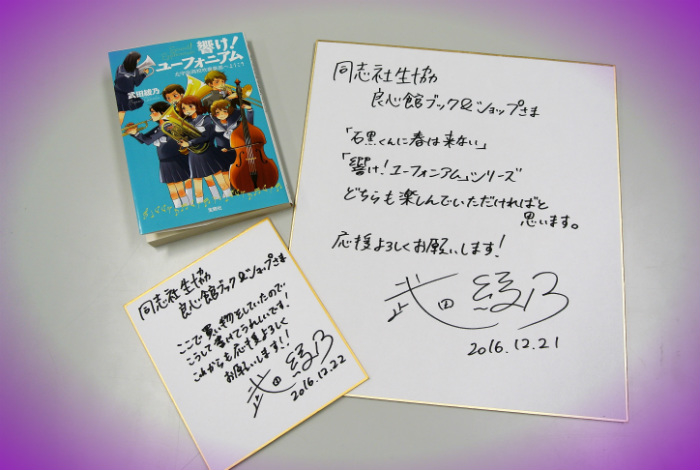 響け!
ユーフォニアム
北宇治高校吹奏楽部へようこそ
武田綾乃
宝島社
同志社生協
良心館ブック&ショップさま
「石黒くんに春は来ない」
「響け!ユーフォニアム」シリーズ
どちらも楽しんでいただければと
思います。
応援よろしくお願いします!
武田綾乃
2016.12.21
同志社生協
良心館ブック&ショップさま
ここで買い物をしていたので
こうして書けてうれしいです!
これからも応援よろしく
お願いします!!
武田綾乃
2016.12.22